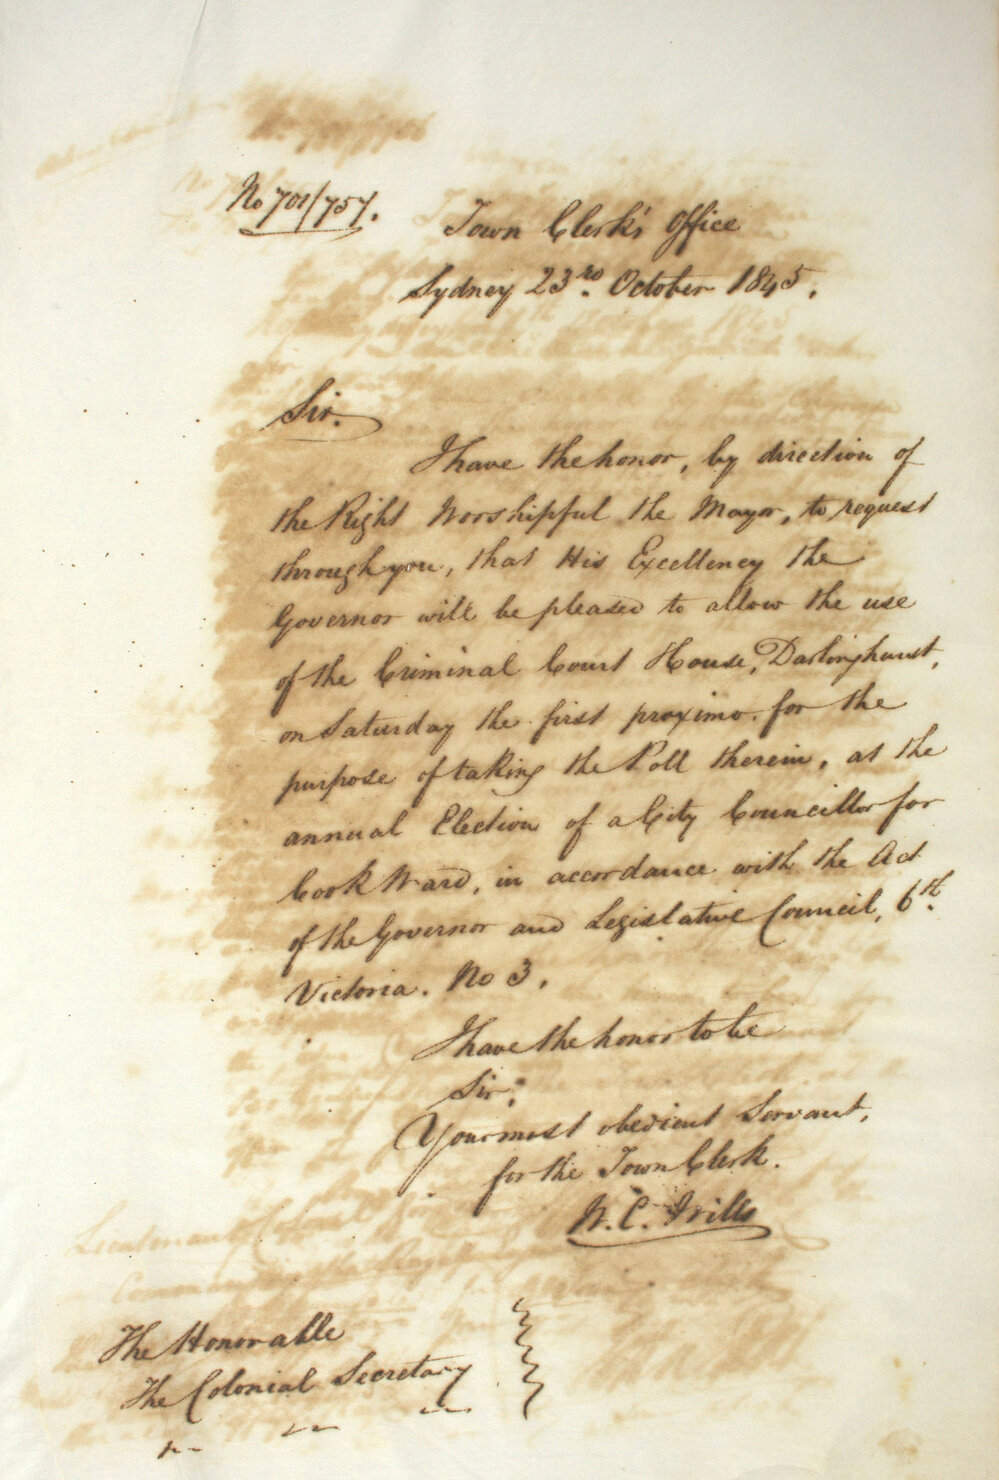 No 701/757.
Town Clerk's Office
Sydney 23rd. October 1845.
Sir.
I have the honor, by direction of
the Right Worshipful the Mayor, to request
through you, that His Excellency the
Governor will be pleased to allow the use
of the Criminal Court House, Darlinghurst,
on Saturday the first proximo. for the
purpose of taking the Poll therein, at the
annual Election of a City Councillor for
Cook Ward, in accordance with the Act
of the Governor and Legislative Council, 6th.
Victoria. No 3.
I have the honor to be
Sir,
Your most obedient Servant,
for the Town Clerk.
W. C.
The Honorable
The Colonial Secretary